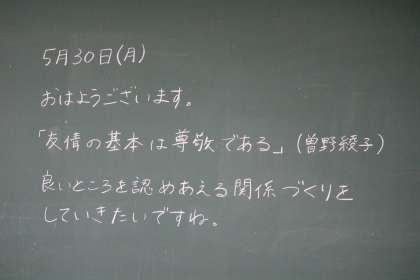 5月30日(月)
おはようございます。
「友情の基本は尊敬である」(曽野綾子)
良いところを認めあえる関係づくりを
していきたいですね。